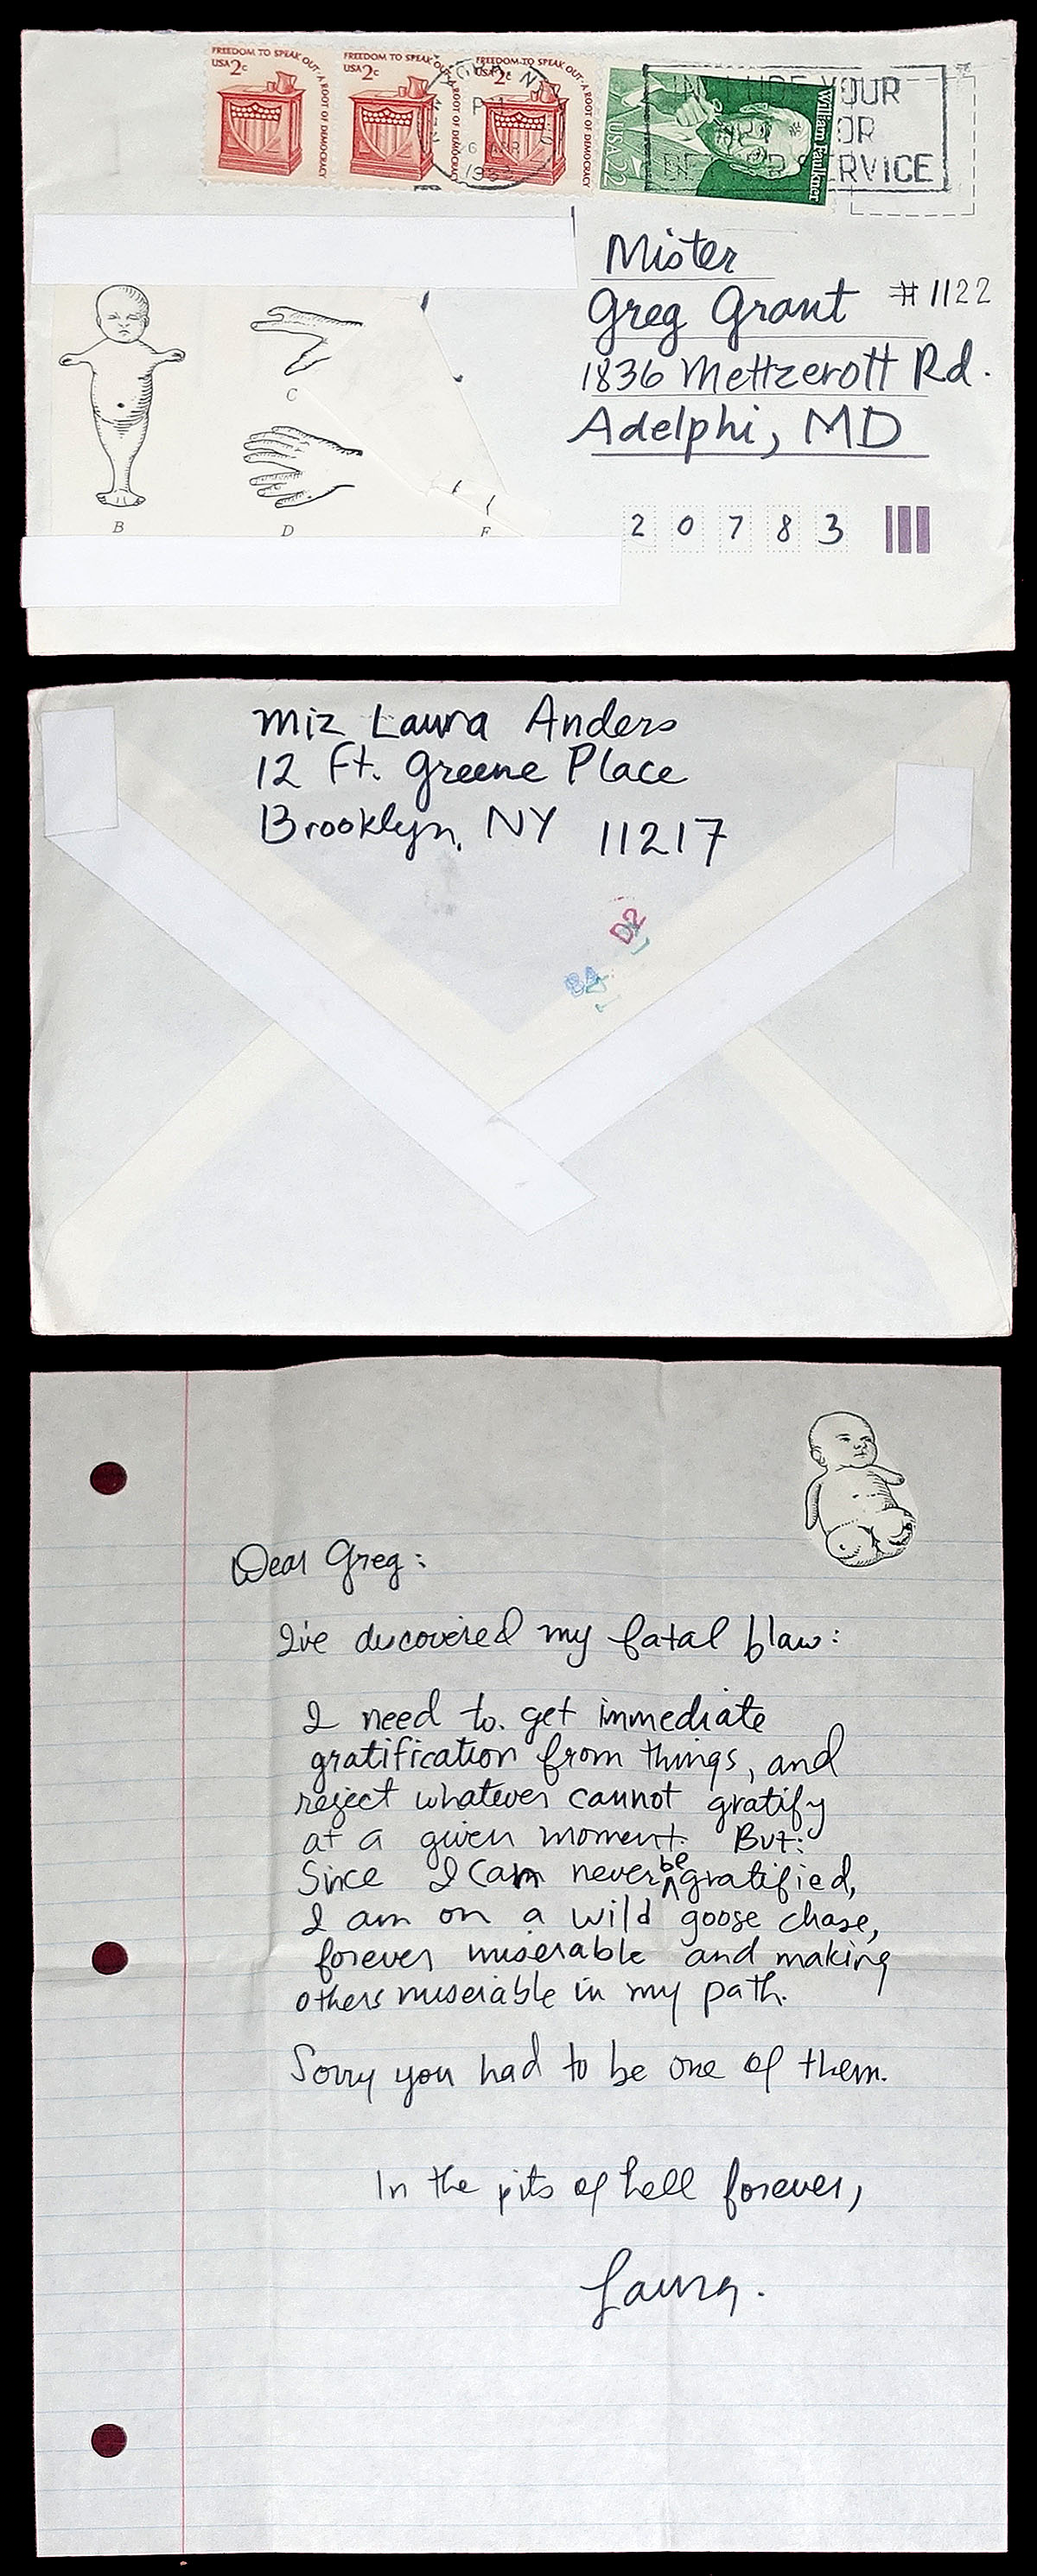 FREEDOM TO SPEAK OUT · A ROOT OF DEMOCRACY
USA 2c
FREEDOM TO SPEAK OUT · A ROOT OF DEMOCRACY
USA 2c
FREEDOM TO SPEAK OUT · A ROOT OF DEMOCRACY
USA 2c
William Faulkner
USA 22
YOUR
OR
SERVICE
PM
6 APR
Mister
Greg Grant #1122
1836 Mettzerott Rd.
Adelphi, MD
20783
B
C
D
Miz Laura Anders
12 Ft. Greene Place
Brooklyn, NY 11217
D2
Dear Greg:
I've discovered my fatal flaw:
I need to get immediate
gratification from things, and
reject whatever cannot gratify
at a given moment. But:
Since I can never be gratified,
I am on a wild goose chase,
forever miserable and making
others miserable in my path.
Sorry you had to be one of them.
In the pits of hell forever,
Laura.